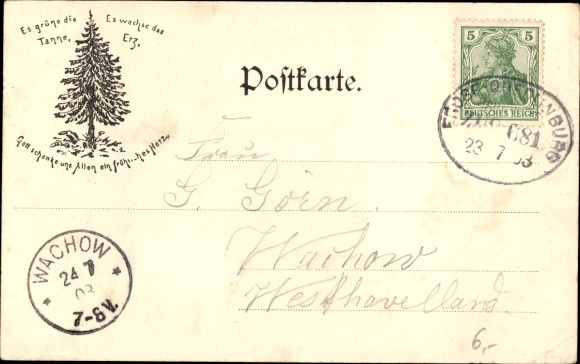 Es grüne die Tanne,
Es wachse das Erz,
Gott schenke uns Allen ein fröhliches Herz.
Postkarte.
5 5
DEUTSCHES REICH
681
23 7 03
Frau
G. Görn
Wachow
Westhavelland.
WACHOW
24 7
03
7-8V.
6,-